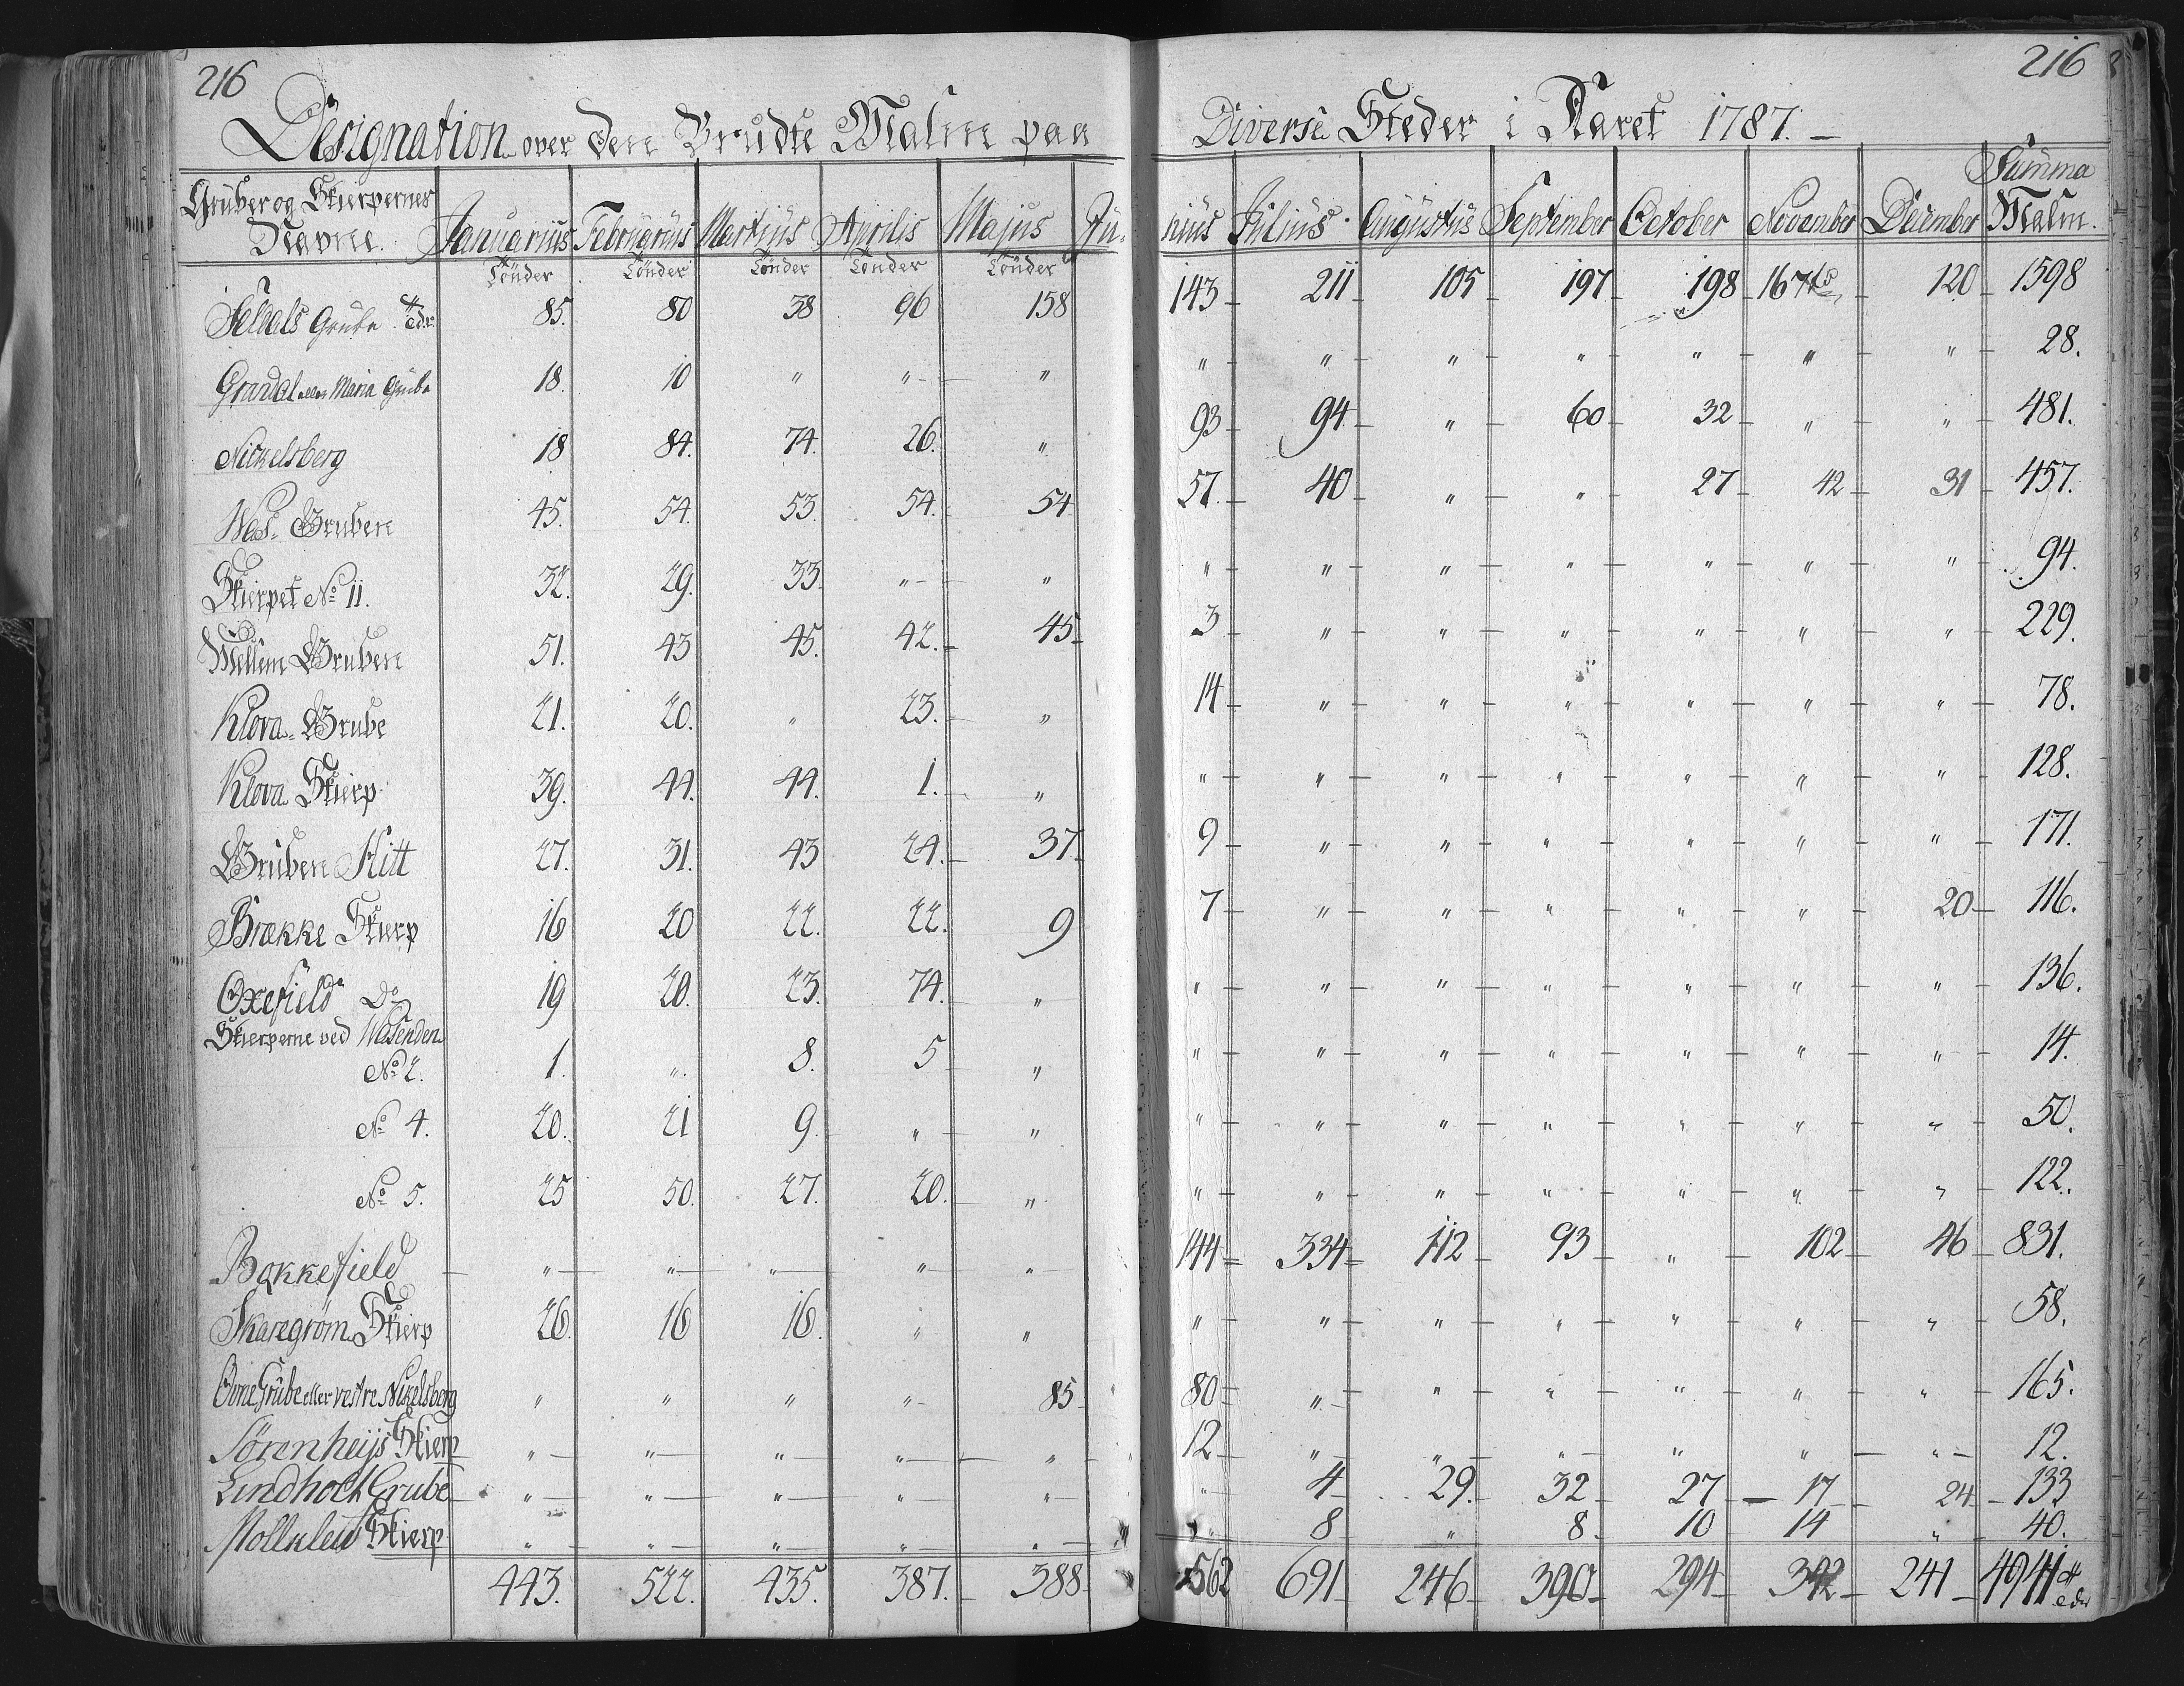 216 216
Designation over den Brudte Malm paa Diverse Steder i Aaret 1787.
Gruber og Skierpernes Navne. Januarius Februarius Martius Aprilis Majus Ju- nius Julius. Augustus September October November December Summa Malm.
Tönder Tönder Tönder Tönder Tönder
Felbels Grube 85. 80 38 96 158 143 211 105 197 198 167 120 1598
Grandal eller Maria Grube 18. 10 " " " " " " " " " " 28.
Nickelsberg 18 84. 74. 26. " 93 94 " 60 32 " " 481.
Was- Gruben 45. 54. 53. 54. 54 57. 40 " " 27 42 31 457.
Skierpet No 11. 32. 29. 33. " " " " " " " " " 94.
Mellem Gruben 51. 43 45. 42. 45 3 " " " " " " 229.
Klova- Grube 21. 20. " 23. " 14 " " " " " " 78.
Klova Skierp 39. 44. 44. 1. " " " " " " " " 128.
Gruben Hitt 27. 31. 43 24. 37. 9 " " " " " " 171.
Brække Skierp 16 20 22. 22. 9 7 " " " " " 20 116.
Oxefield Do 19 20. 23. 74. " " " " " " " " 136.
Skierperne ved Wasenden
No 2. 1. " 8. 5 " " " " " " " " 14.
No 4. 20. 21 9. " " " " " " " " " 50.
No 5. 25 50. 27. 20. " " " " " " " " 122.
Bakkefield " " " " " 144 334 112 93 " 102 46 831.
Skaregrøm Skierp 26. 16 16. " " " " " " " " " 58.
Øvne Grube eller vestre Nikelsberg " " " " 85 80 " " " " " " 165.
Sørenheijs Skierp " " " " " 12 " " " " " " 12.
Lindholt Grube " " " " " " 4 29. 32 27 17 24 133
Mollklew Skierp " " " " " " 8 " 8. 10 14 " 40.
443. 522. 435. 387. 388 562 691 246 390 294 342 241 4941